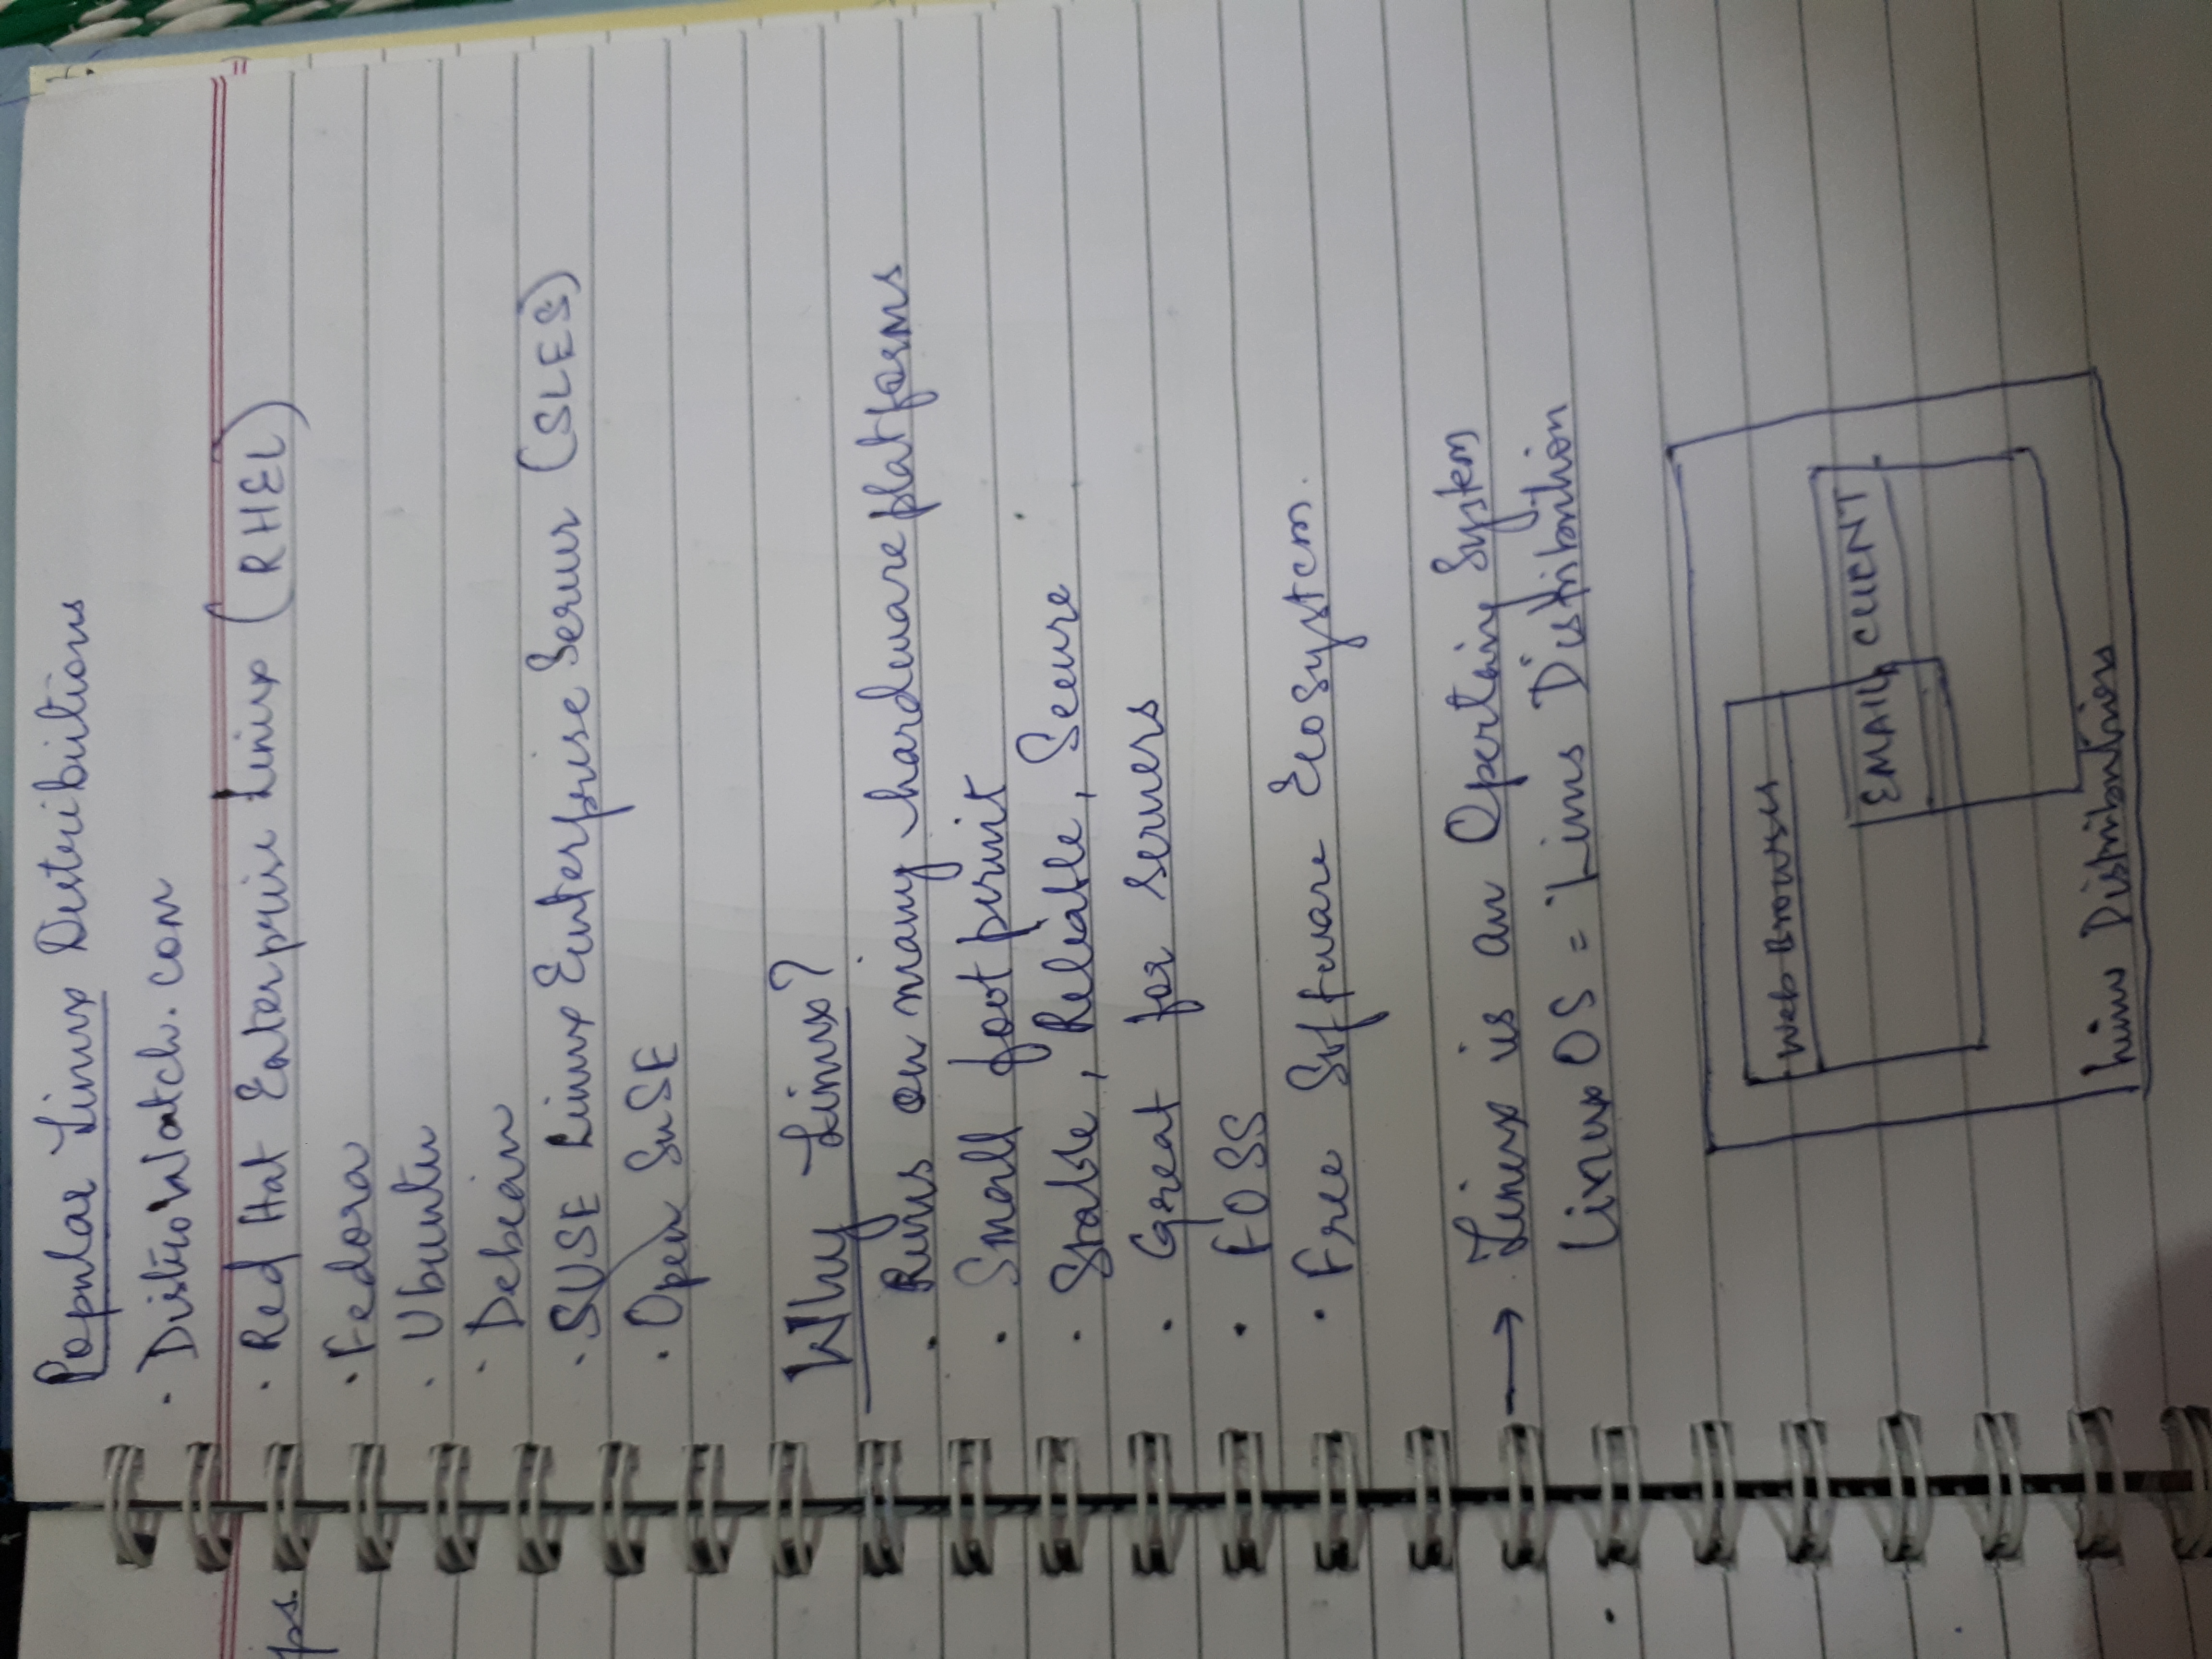 ps.
Popular Linux Distributions
· DistroWatch.com
· Red Hat Enterprise Linux (RHEL)
· Fedora
· Ubuntu
· Debian
· SUSE Linux Eunterprise Server (SLES)
· Open SuSE
Why Linux?
· Runs on many hardware platforms
· Small foot print
· Stable, Reliable, Secure
· Great for servers
· FOSS
· Free Software Ecosystem.
→ Linux is an Operting System
Linux OS = Linux Distribution
Web Browser
EMAIL CLIENT
Linux Distributions